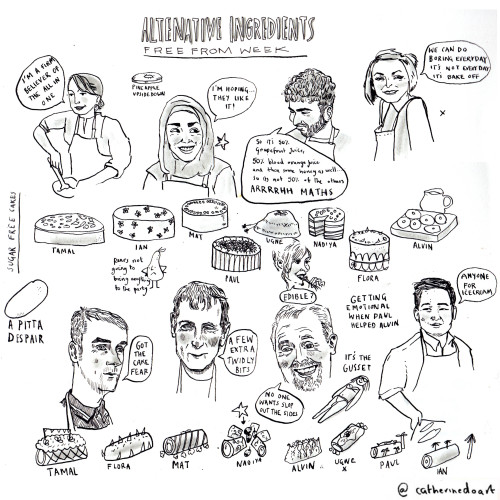 ALTENATIVE INGREDIENTS
FREE FROM WEEK
I'M A FIRM
BELIEVER OF
THE ALL IN
ONE
PINEAPPLE
UPSIDEDOWN
I'M HOPING...
THEY LIKE
IT!
So it's 50%
Grapefruit Juice,
50% blood orange juice
and then some honey as well.
So it's not 50% of the others
ARRRRHH MATHS
WE CAN DO
BORING EVERYDAY
IT'S NOT EVERYDAY
IT'S BAKE OFF
x
SUGAR FREE CAKES
TAMAL
IAN
MAT
PAUL
UGNE
NADIYA
FLORA
ALVIN
pears not
going to
bring anything
to the party
EDIBLE?
A PITTA
DESPAIR
GOT
THE CAKE
FEAR
A FEW
EXTRA
TWIDLY
BITS
NO ONE
WANTS SLOP
OUT THE SIDES
GETTING
EMOTIONAL
WHEN PAUL
HELPED ALVIN
IT'S THE
GUSSET
ANYONE
FOR
ICECREAM
TAMAL
FLORA
MAT
NADIYA
ALVIN
UGNE
x
PAUL
IAN
@ catherinedoart